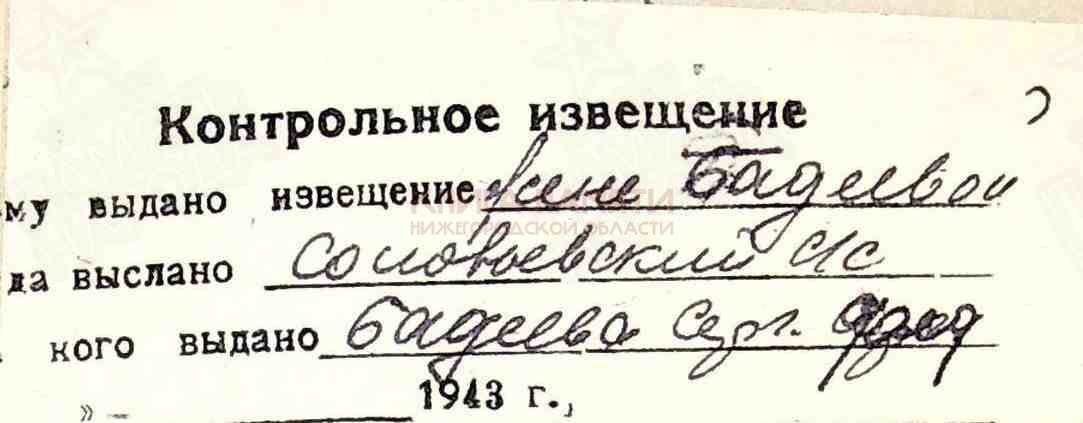 Контрольное извещение
му выдано извещение жене Бадеевой
да выслано Соловьевский с/с
КНИГА ПАМЯТИ
НИЖЕГОРОДСКОЙ ОБЛАСТИ
кого выдано Бадеева Серг.
» – 1943 г.,